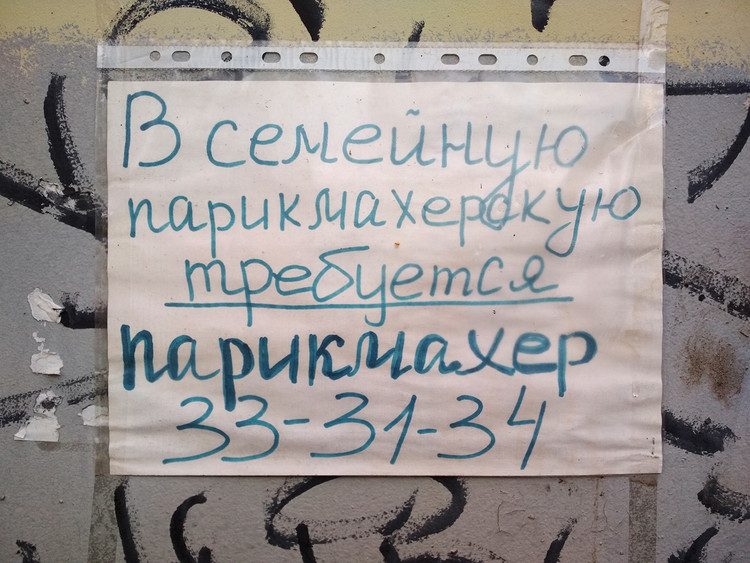 В семейную
парикмахерскую
требуется
парикмахер
33-31-34